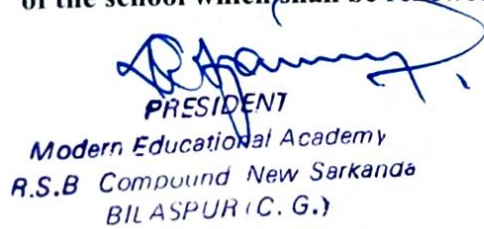 of the school which shall be
PRESIDENT
Modern Educational Academy
R.S.B Compound New Sarkanda
BILASPUR (C. G.)